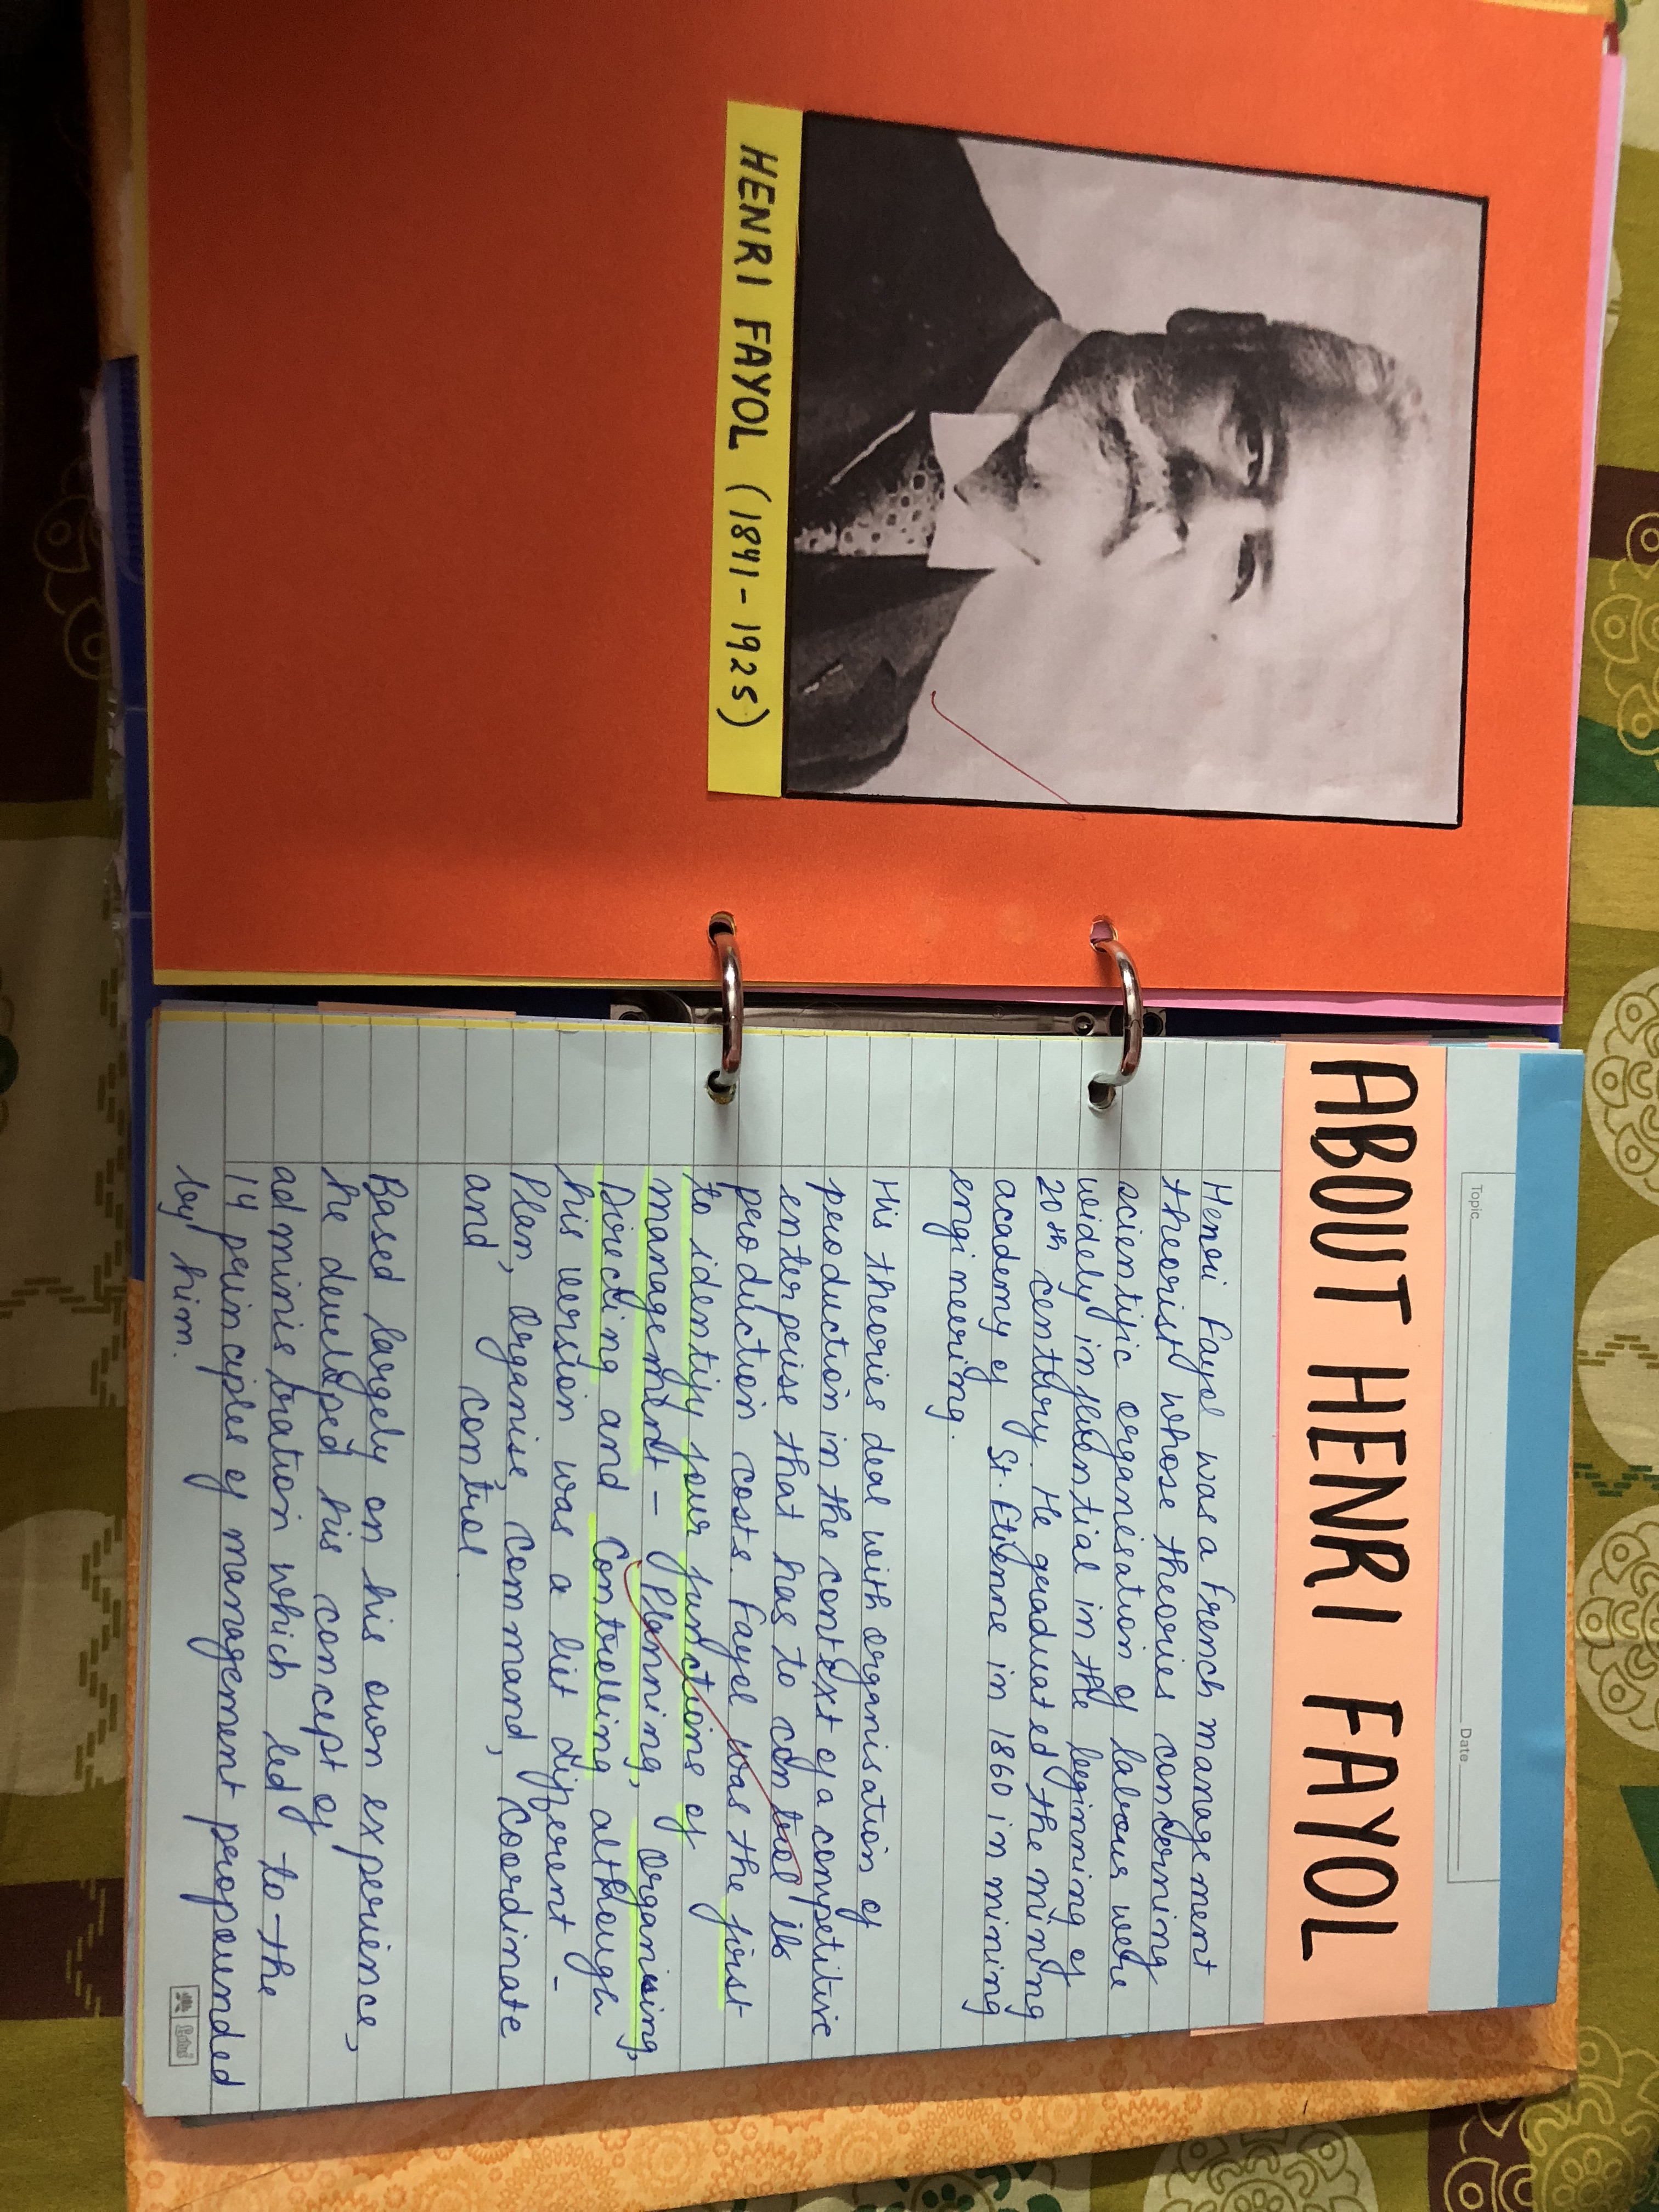 HENRI FAYOL (1841-1925)
Topic
Date
ABOUT HENRI FAYOL
Henri Fayol was a French management
theorist whose theories concerning
scientific organisation of labour were
widely influential in the beginning of
20th century. He graduated the mining
academy of St. Etienne in 1860 in mining
engineering.
His theories deal with organisation of
production in the context of a competitive
enterprise that has to control its
production costs. Fayol was the first
to identify four functions of
management - Planning, Organising,
Directing and Controlling although
his version was a bit different -
Plan, Organise, Command, Coordinate
and control.
Based largely on his own experience,
he developed his concept of
administration which led to the
14 principles of management propounded
by him.